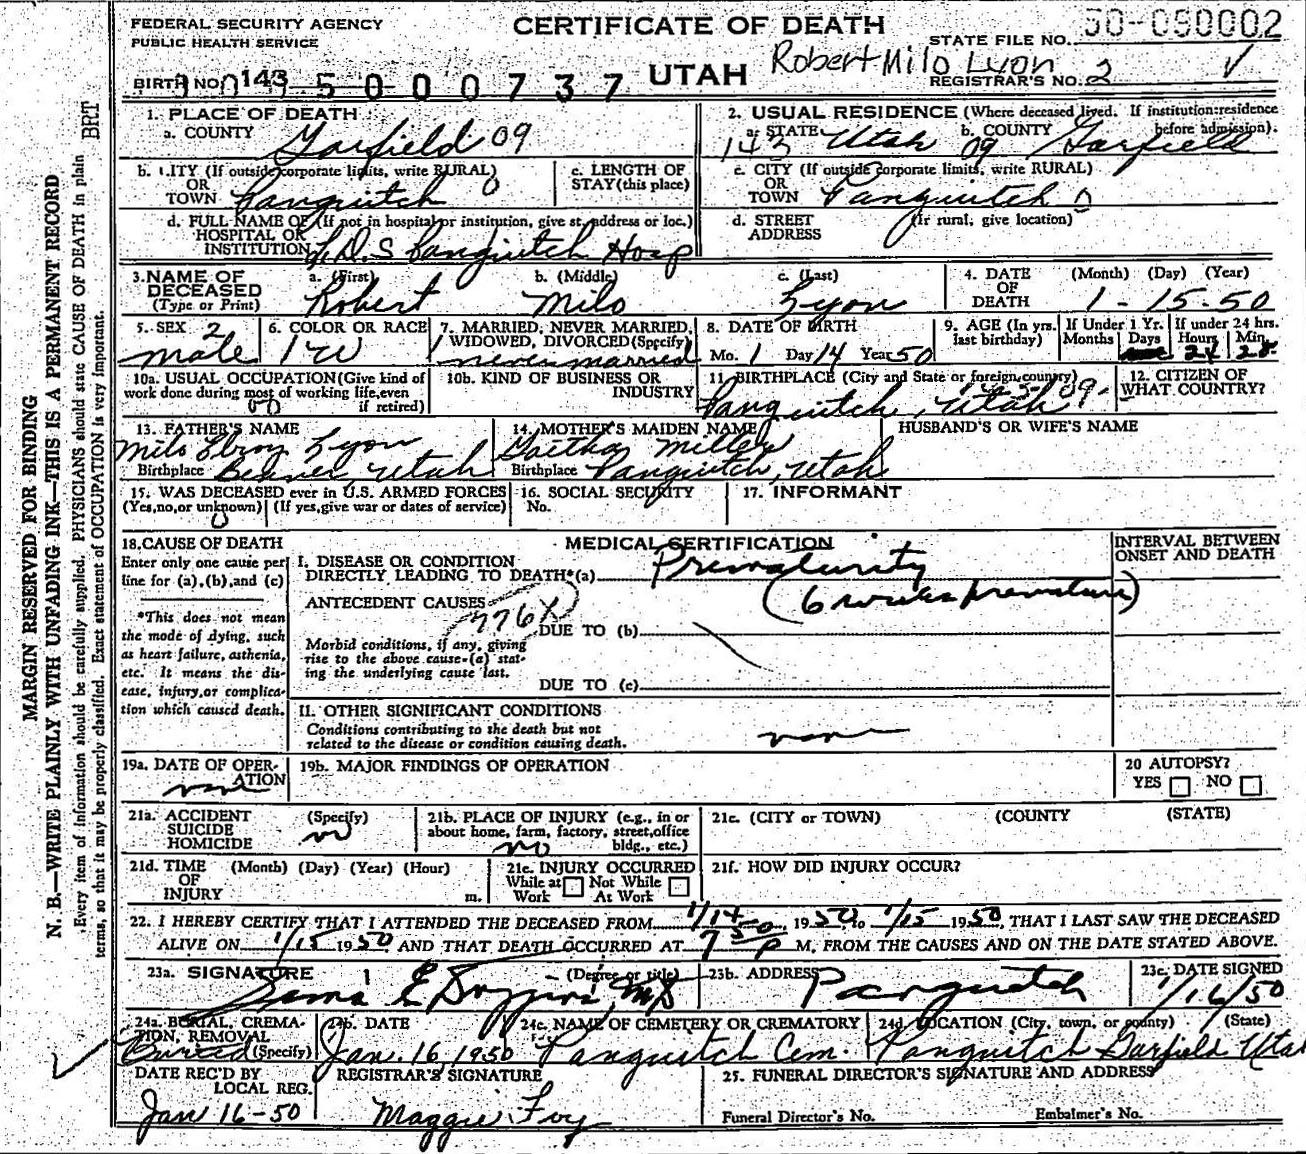 FEDERAL SECURITY AGENCY
PUBLIC HEALTH SERVICE
CERTIFICATE OF DEATH
STATE FILE NO. 50-090002
BIRTH NO. 143 5000737
UTAH
Robert Milo Lyon
REGISTRAR'S NO. 2
MARGIN RESERVED FOR BINDING
N. B.—WRITE PLAINLY WITH UNFADING INK—THIS IS A PERMANENT RECORD
Every item of information should be carefully supplied. PHYSICIANS should state CAUSE OF DEATH in plain
terms, so that it may be properly classified. Exact statement of OCCUPATION is very important.
BRT
1. PLACE OF DEATH
a. COUNTY Garfield 09
2. USUAL RESIDENCE (Where deceased lived. If institution: residence before admission).
a. STATE 143 Utah b. COUNTY 09 Garfield
b. CITY (If outside corporate limits, write RURAL) OR TOWN Panguitch 0
c. LENGTH OF STAY (this place)
c. CITY (If outside corporate limits, write RURAL) OR TOWN Panguitch 0
d. FULL NAME OF (If not in hospital or institution, give st. address or loc.) HOSPITAL OR INSTITUTION L.D.S Panguitch Hosp
d. STREET ADDRESS (If rural, give location)
3. NAME OF DECEASED (Type or Print)
a. (First) Robert b. (Middle) Milo c. (Last) Lyon
4. DATE OF DEATH (Month) (Day) (Year) 1-15-50
5. SEX 2 male
6. COLOR OR RACE 1 W
7. MARRIED, NEVER MARRIED, WIDOWED, DIVORCED (Specify) 1 never married
8. DATE OF BIRTH Mo. 1 Day 14 Year 50
9. AGE (In yrs. last birthday) If Under 1 Yr. Months Days If under 24 hrs. Hours 24 Min. 28
10a. USUAL OCCUPATION (Give kind of work done during most of working life, even if retired)
10b. KIND OF BUSINESS OR INDUSTRY
11. BIRTHPLACE (City and State or foreign country) Panguitch, Utah 09-
12. CITIZEN OF WHAT COUNTRY?
13. FATHER'S NAME Milo Elroy Lyon
Birthplace Beaver, Utah
14. MOTHER'S MAIDEN NAME Miller
Birthplace Panguitch, Utah
HUSBAND'S OR WIFE'S NAME
15. WAS DECEASED ever in U.S. ARMED FORCES (Yes, no, or unknown) (If yes, give war or dates of service) 0
16. SOCIAL SECURITY No.
17. INFORMANT
18. CAUSE OF DEATH
Enter only one cause per line for (a), (b), and (c)
*This does not mean the mode of dying, such as heart failure, asthenia, etc. It means the disease, injury, or complication which caused death.
MEDICAL CERTIFICATION
INTERVAL BETWEEN ONSET AND DEATH
I. DISEASE OR CONDITION DIRECTLY LEADING TO DEATH*(a) Prematurity
(6 weeks premature)
ANTECEDENT CAUSES 776X
DUE TO (b)
Morbid conditions, if any, giving rise to the above cause (a) stating the underlying cause last.
DUE TO (c)
II. OTHER SIGNIFICANT CONDITIONS
Conditions contributing to the death but not related to the disease or condition causing death. none
19a. DATE OF OPERATION none
19b. MAJOR FINDINGS OF OPERATION
20 AUTOPSY? YES NO
21a. ACCIDENT SUICIDE HOMICIDE (Specify) no
21b. PLACE OF INJURY (e.g., in or about home, farm, factory, street, office bldg., etc.) no
21c. (CITY or TOWN) (COUNTY) (STATE)
21d. TIME OF INJURY (Month) (Day) (Year) (Hour) m.
21e. INJURY OCCURRED While at Work Not While At Work
21f. HOW DID INJURY OCCUR?
22. I HEREBY CERTIFY THAT I ATTENDED THE DECEASED FROM 1/14, 1950, to 1/15 1950, THAT I LAST SAW THE DECEASED
ALIVE ON 1/15 1950 AND THAT DEATH OCCURRED AT 7 50 P M., FROM THE CAUSES AND ON THE DATE STATED ABOVE.
23a. SIGNATURE (Degree or title) MD
23b. ADDRESS Panguitch
23c. DATE SIGNED 1/16/50
24a. BURIAL, CREMATION, REMOVAL (Specify) Buried
24b. DATE Jan. 16, 1950
24c. NAME OF CEMETERY OR CREMATORY Panguitch Cem.
24d. LOCATION (City, town, or county) (State) Panguitch Garfield Utah
DATE REC'D BY LOCAL REG. Jan 16-50
REGISTRAR'S SIGNATURE Maggie Foy
25. FUNERAL DIRECTOR'S SIGNATURE AND ADDRESS
Funeral Director's No. Embalmer's No.